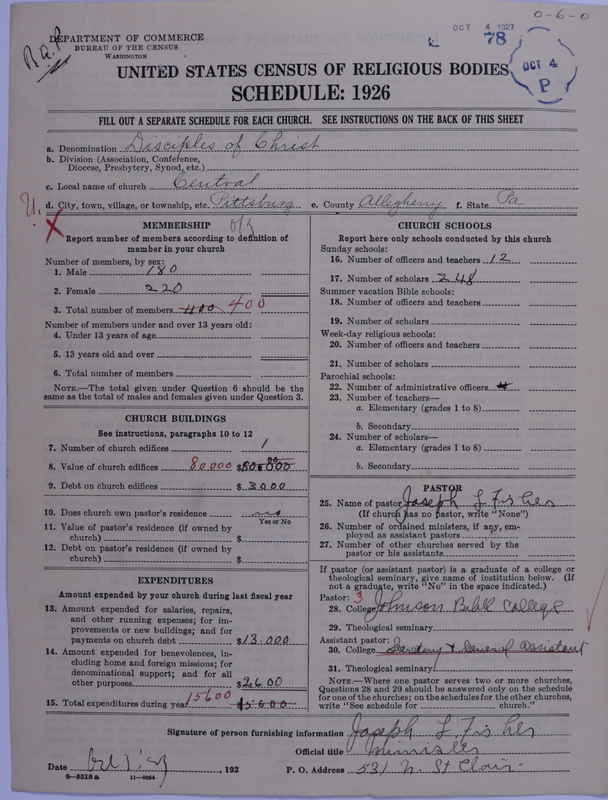 DEPARTMENT OF COMMERCE
BUREAU OF THE CENSUS
WASHINGTON
R.a.P
OCT 4 1927
78
0-6-0
OCT 4
P
UNITED STATES CENSUS OF RELIGIOUS BODIES
SCHEDULE: 1926
FILL OUT A SEPARATE SCHEDULE FOR EACH CHURCH. SEE INSTRUCTIONS ON THE BACK OF THIS SHEET
a. Denomination Disciples of Christ
b. Division (Association, Conference,
Diocese, Presbytery, Synod, etc.)
c. Local name of church Central
d. City, town, village, or township, etc. Pittsburg e. County Allegheny f. State Pa
U. X
MEMBERSHIP
Report number of members according to definition of
member in your church
Number of members, by sex:
1. Male 180
2. Female 220
3. Total number of members 400 400
Number of members under and over 13 years old:
4. Under 13 years of age
5. 13 years old and over
6. Total number of members
NOTE.—The total given under Question 6 should be the
same as the total of males and females given under Question 3.
CHURCH BUILDINGS
See instructions, paragraphs 10 to 12
7. Number of church edifices 1
8. Value of church edifices 80000 $
9. Debt on church edifices $ 3000
10. Does church own pastor's residence no
Yes or No
11. Value of pastor's residence (if owned by
church) $
12. Debt on pastor's residence (if owned by
church) $
EXPENDITURES
Amount expended by your church during last fiscal year
13. Amount expended for salaries, repairs,
and other running expenses; for im-
provements or new buildings; and for
payments on church debt $13.000
14. Amount expended for benevolences, in-
cluding home and foreign missions; for
denominational support; and for all
other purposes $2600
15. Total expenditures during year 15600
CHURCH SCHOOLS
Report here only schools conducted by this church
Sunday schools:
16. Number of officers and teachers 12
17. Number of scholars 248
Summer vacation Bible schools:
18. Number of officers and teachers
19. Number of scholars
Week-day religious schools:
20. Number of officers and teachers
21. Number of scholars
Parochial schools:
22. Number of administrative officers
23. Number of teachers—
a. Elementary (grades 1 to 8)
b. Secondary
24. Number of scholars—
a. Elementary (grades 1 to 8)
b. Secondary
PASTOR
25. Name of pastor Joseph L Fisher
(If church has no pastor, write "None")
26. Number of ordained ministers, if any, em-
ployed as assistant pastors
27. Number of other churches served by the
pastor or his assistants
If pastor (or assistant pastor) is a graduate of a college or
theological seminary, give name of institution below. (If
not a graduate, write "No" in the space indicated.)
Pastor: 3
28. College Johnson Bible College
29. Theological seminary
Assistant pastor:
30. College General Assistant
31. Theological seminary
NOTE.—Where one pastor serves two or more churches,
Question 28 and 29 should be answered only on the schedule
for one of the churches; on the schedules for the other churches,
write "See schedule for church."
Signature of person furnishing information Joseph L Fisher
Official title Minister
Date , 192 P. O. Address 531 N. St Clair
8-5518a 11-9064